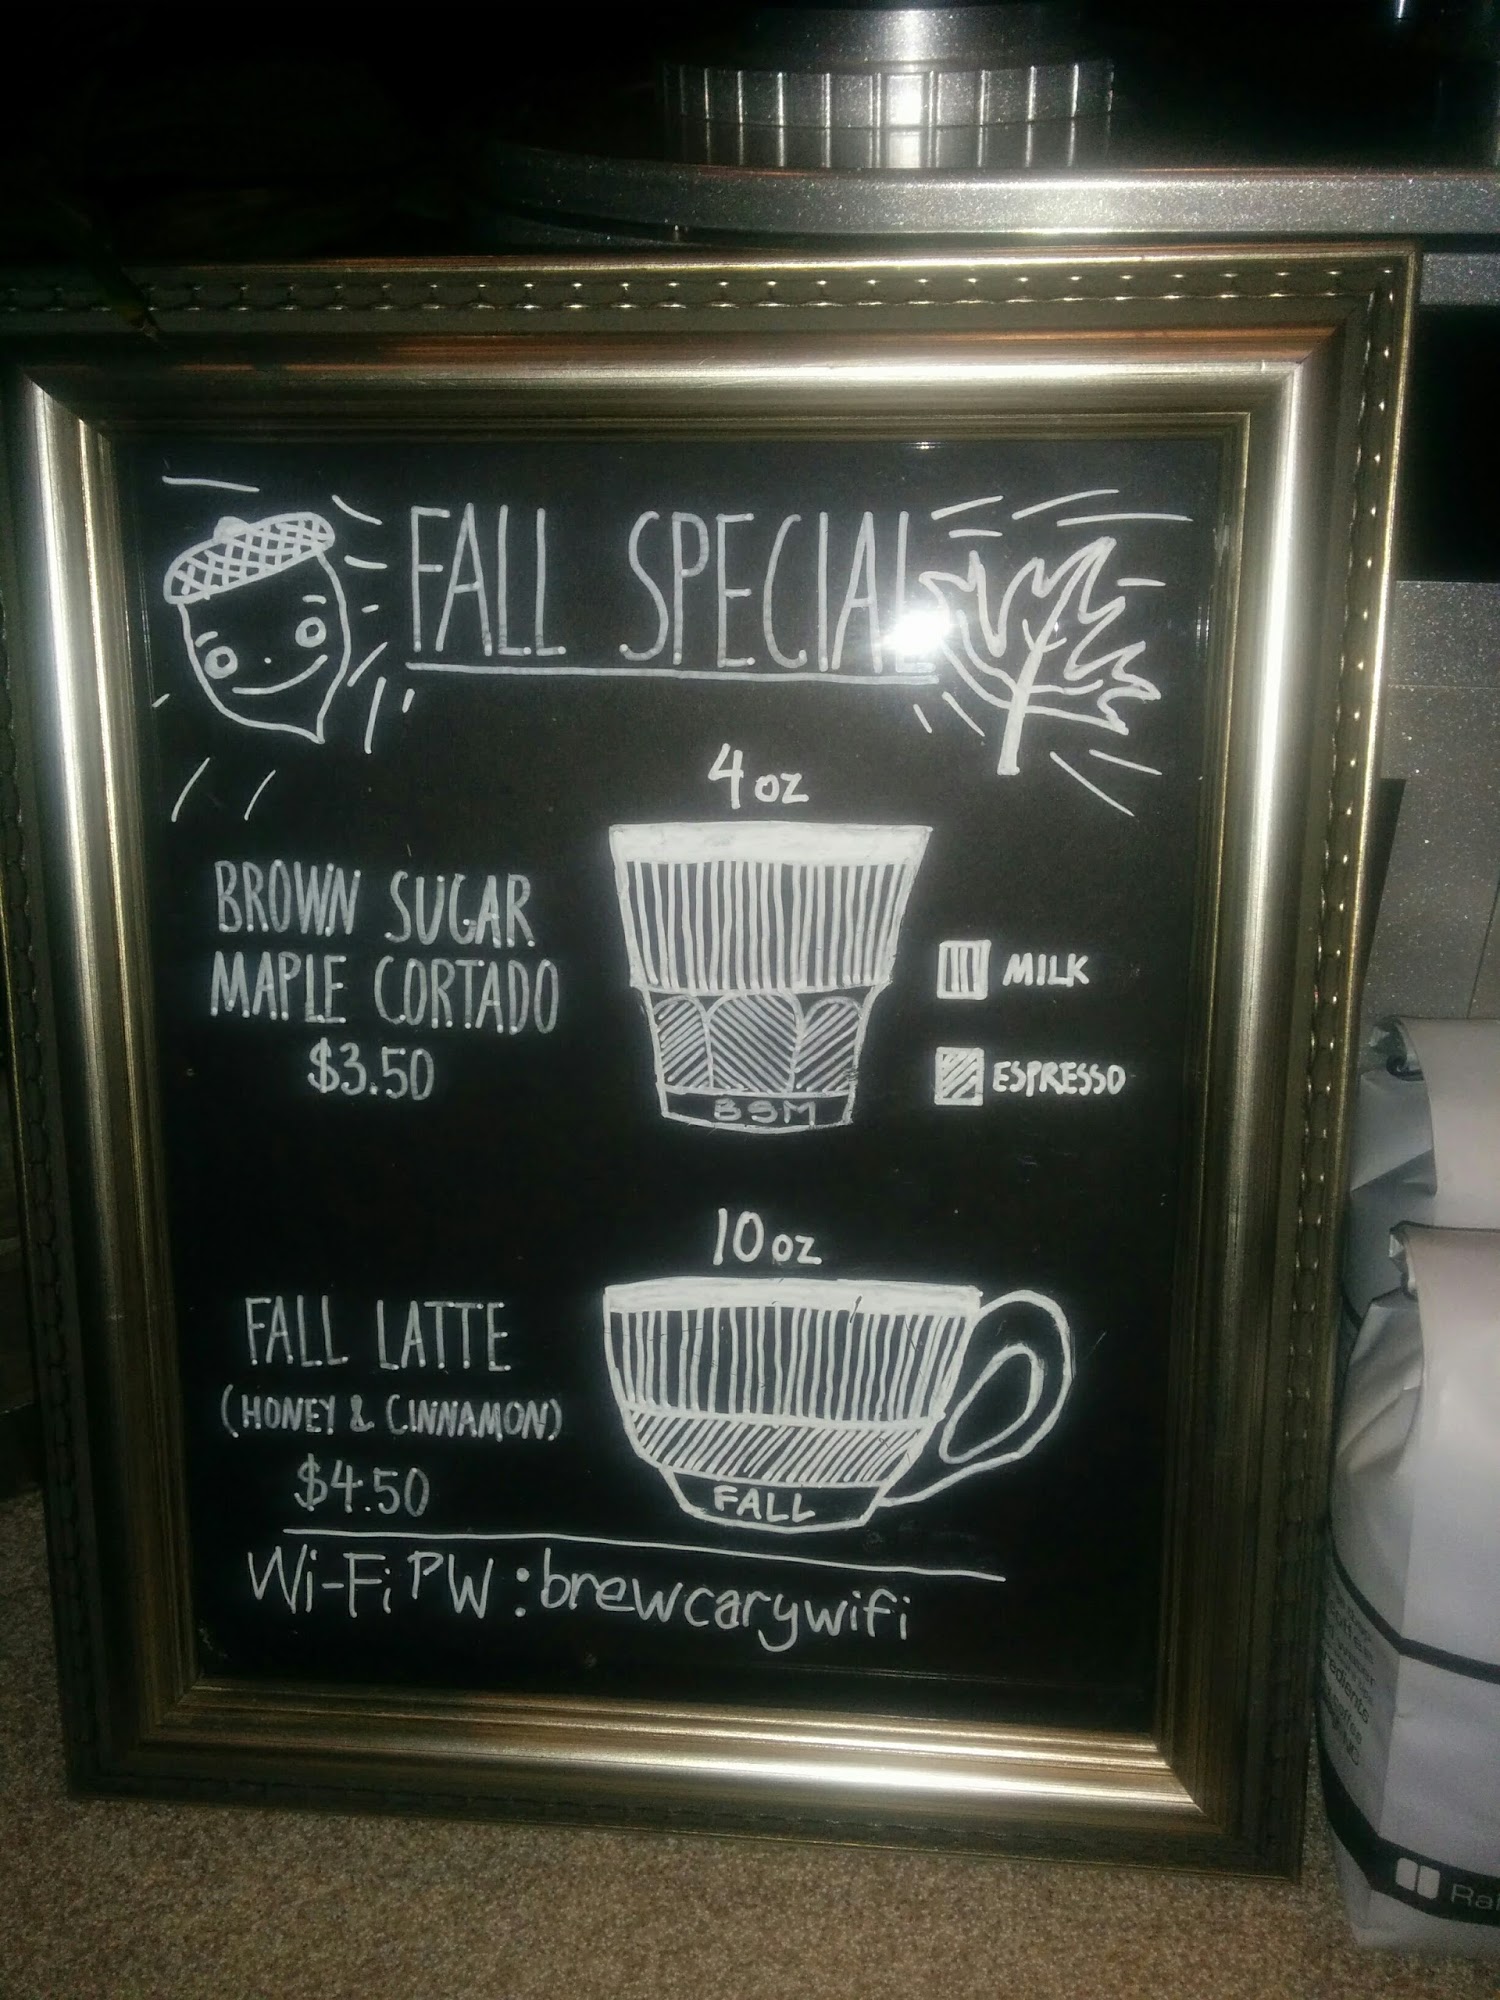 FALL SPECIAL
4 oz
BROWN SUGAR
MAPLE CORTADO
$3.50
MILK
ESPRESSO
BSM
10 oz
FALL LATTE
(HONEY & CINNAMON)
$4.50
FALL
Wi-Fi PW : brewcarywifi